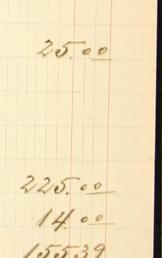 25.00
225.00
14.00
155.39